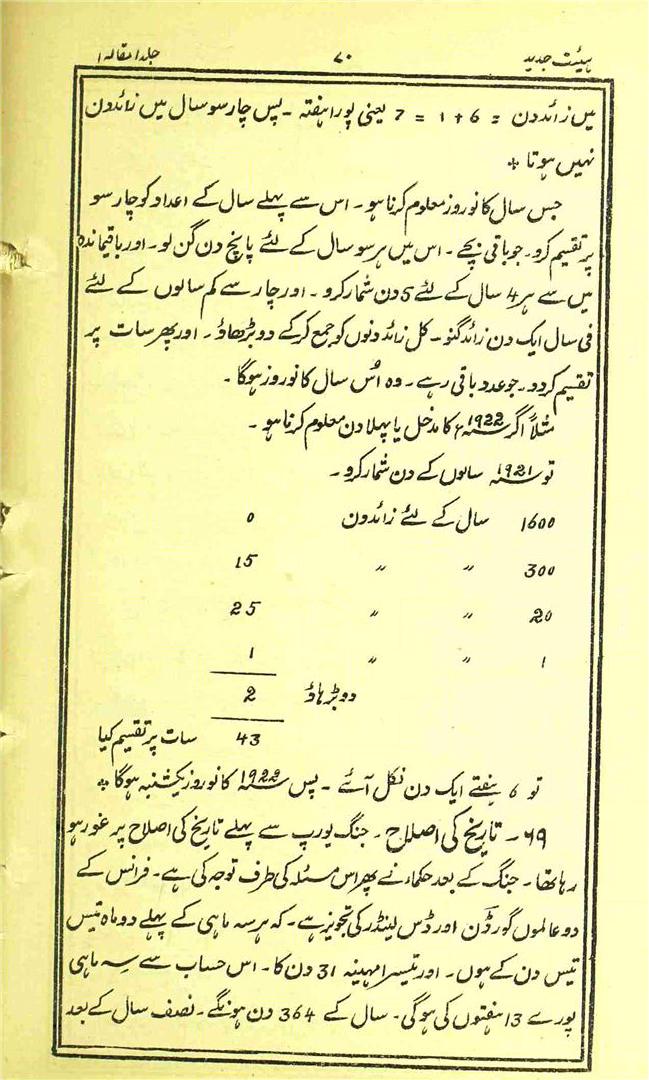 ہیئت جدید ۷۰ جلد ا مقالہ ا
میں زائد دن = 6 + 1 = 7 یعنی پورا ہفتہ ۔ پس چار سو سال میں زائد دن
نہیں ہوتا *
جس سال کا نوروز معلوم کرنا ہو ۔ اس سے پہلے سال کے اعداد کو چار سو
پر تقسیم کرو ۔ جو باقی بچے ۔ اس میں ہر سو سال کے لئے پانچ دن گن لو ۔ اور باقیماندہ
میں سے ہر 4 سال کے لئے 5 دن شمار کرو ۔ اور چار سے کم سالوں کے لئے
فی سال ایک دن زائد گنو ۔ کل زائد دنوں کو جمع کرکے دو بڑھاؤ ۔ اور پھر سات پر
تقسیم کر دو ۔ جو عدد باقی رہے ۔ وہ اُس سال کا نوروز ہوگا ۔
مثلاً اگر 1922ء کا مدخل یا پہلا دن معلوم کرنا ہو ۔
تو 1921 سالوں کے دن شمار کرو ۔
1600 سال کے لئے زائد دن 0
300 " " 15
20 " " 25
1 " " 1
دو بڑھاؤ 2
43 سات پر تقسیم کیا
تو 6 ہفتے ایک دن نکل آئے ۔ پس 1922 کا نوروز یکشنبہ ہوگا *
۶۹ ۔ تاریخ کی اصلاح ۔ جنگ یورپ سے پہلے تاریخ کی اصلاح پر غور ہو
رہا تھا ۔ جنگ کے بعد حکماء نے پھر اس مسئلہ کی طرف توجہ کی ہے ۔ فرانس کے
دو عالموں گورڈن اور ڈس لینڈر کی تجویز ہے ۔ کہ ہر سہ ماہی کے پہلے دو ماہ تیس
تیس دن کے ہوں ۔ اور تیسرا مہینہ 31 دن کا ۔ اس حساب سے سہ ماہی
پورے 13 ہفتوں کی ہوگی ۔ سال کے 364 دن ہونگے ۔ نصف سال کے بعد